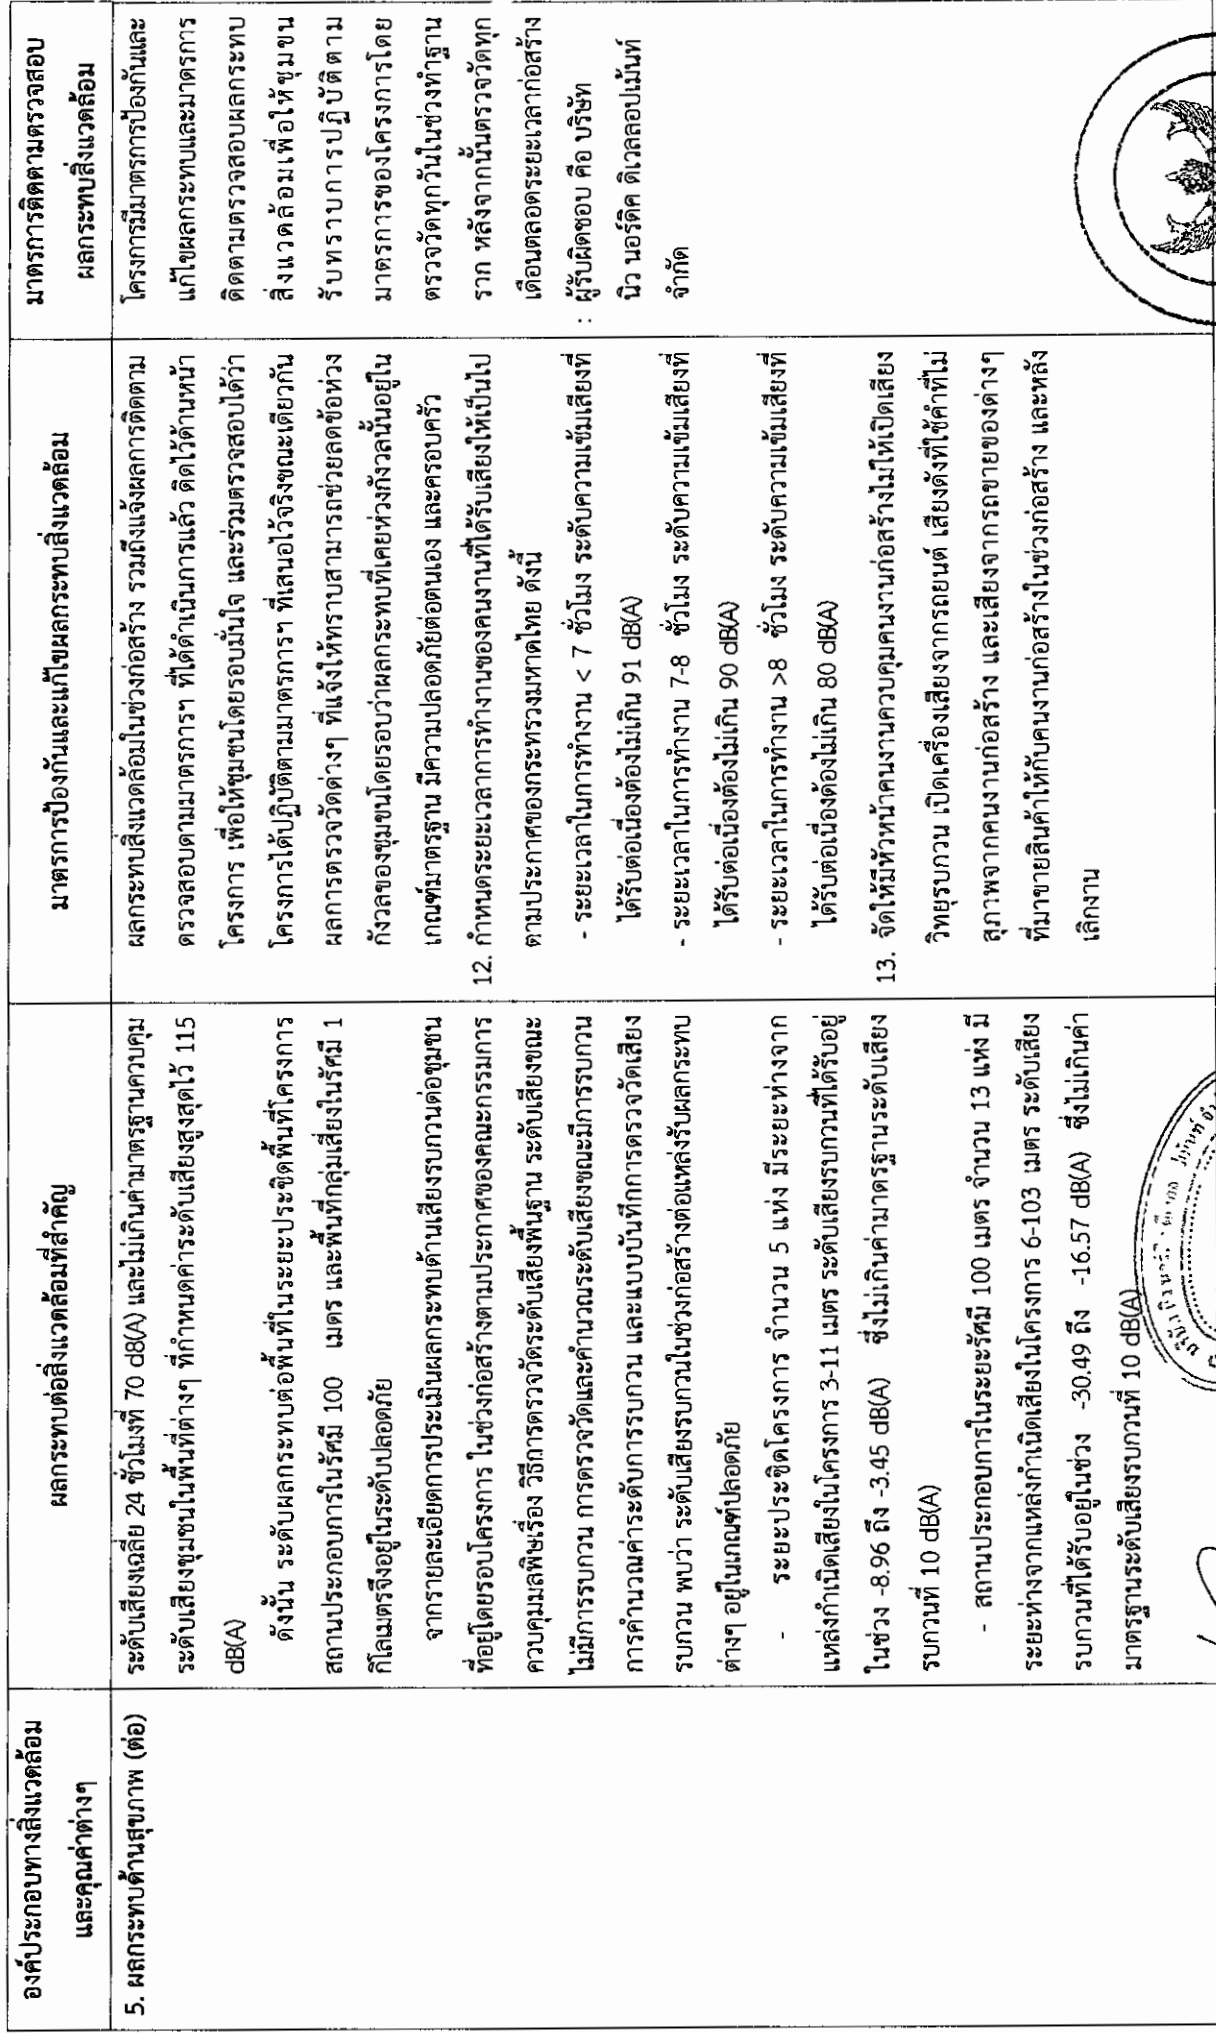 องค์ประกอบทางสิ่งแวดล้อม
และคุณค่าต่างๆ
ผลกระทบต่อสิ่งแวดล้อมที่สำคัญ
มาตรการป้องกันและแก้ไขผลกระทบสิ่งแวดล้อม
มาตรการติดตามตรวจสอบ
ผลกระทบสิ่งแวดล้อม
5. ผลกระทบด้านสุขภาพ (ต่อ)
ระดับเสียงเฉลี่ย 24 ชั่วโมงที่ 70 dB(A) และไม่เกินค่ามาตรฐานควบคุม
ระดับเสียงชุมชนในพื้นที่ต่างๆ ที่กำหนดค่าระดับเสียงสูงสุดไว้ 115
dB(A)
ดังนั้น ระดับผลกระทบต่อพื้นที่ในระยะประชิดพื้นที่โครงการ
สถานประกอบการในรัศมี 100 เมตร และพื้นที่กลุ่มเสี่ยงในรัศมี 1
กิโลเมตรจึงอยู่ในระดับปลอดภัย
จากรายละเอียดการประเมินผลกระทบด้านเสียงรบกวนต่อชุมชน
ที่อยู่โดยรอบโครงการ ในช่วงก่อสร้างตามประกาศของคณะกรรมการ
ควบคุมมลพิษเรื่อง วิธีการตรวจวัดระดับเสียงพื้นฐาน ระดับเสียงขณะ
ไม่มีการรบกวน การตรวจวัดและคำนวณระดับเสียงขณะมีการรบกวน
การคำนวณค่าระดับการรบกวน และแบบบันทึกการตรวจวัดเสียง
รบกวน พบว่า ระดับเสียงรบกวนในช่วงก่อสร้างต่อแหล่งรับผลกระทบ
ต่างๆ อยู่ในเกณฑ์ปลอดภัย
- ระยะประชิดโครงการ จำนวน 5 แห่ง มีระยะห่างจาก
แหล่งกำเนิดเสียงในโครงการ 3-11 เมตร ระดับเสียงรบกวนที่ได้รับอยู่
ในช่วง -8.96 ถึง -3.45 dB(A) ซึ่งไม่เกินค่ามาตรฐานระดับเสียง
รบกวนที่ 10 dB(A)
- สถานประกอบการในระยะรัศมี 100 เมตร จำนวน 13 แห่ง มี
ระยะห่างจากแหล่งกำเนิดเสียงในโครงการ 6-103 เมตร ระดับเสียง
รบกวนที่ได้รับอยู่ในช่วง -30.49 ถึง -16.57 dB(A) ซึ่งไม่เกินค่า
มาตรฐานระดับเสียงรบกวนที่ 10 dB(A)
ผลกระทบสิ่งแวดล้อมในช่วงก่อสร้าง รวมถึงแจ้งผลการติดตาม
ตรวจสอบตามมาตรการฯ ที่ได้ดำเนินการแล้ว ติดไว้ด้านหน้า
โครงการ เพื่อให้ชุมชนโดยรอบมั่นใจ และร่วมตรวจสอบได้ว่า
โครงการได้ปฏิบัติตามมาตรการฯ ที่เสนอไว้จริงขณะเดียวกัน
ผลการตรวจวัดต่างๆ ที่แจ้งให้ทราบสามารถช่วยลดข้อห่วง
กังวลของชุมชนโดยรอบว่าผลกระทบที่เคยห่วงกังวลนั้นอยู่ใน
เกณฑ์มาตรฐาน มีความปลอดภัยต่อตนเอง และครอบครัว
12. กำหนดระยะเวลาการทำงานของคนงานที่ได้รับเสียงให้เป็นไป
ตามประกาศของกระทรวงมหาดไทย ดังนี้
- ระยะเวลาในการทำงาน < 7 ชั่วโมง ระดับความเข้มเสียงที่
ได้รับต่อเนื่องต้องไม่เกิน 91 dB(A)
- ระยะเวลาในการทำงาน 7-8 ชั่วโมง ระดับความเข้มเสียงที่
ได้รับต่อเนื่องต้องไม่เกิน 90 dB(A)
- ระยะเวลาในการทำงาน >8 ชั่วโมง ระดับความเข้มเสียงที่
ได้รับต่อเนื่องต้องไม่เกิน 80 dB(A)
13. จัดให้มีหัวหน้าคนงานควบคุมคนงานก่อสร้างไม่ให้เปิดเสียง
วิทยุรบกวน เปิดเครื่องเสียงจากรถยนต์ เสียงดังที่ใช้คำที่ไม่
สุภาพจากคนงานก่อสร้าง และเสียงจากรถขายของต่างๆ
ที่มาขายสินค้าให้กับคนงานก่อสร้างในช่วงก่อสร้าง และหลัง
เลิกงาน
โครงการมีมาตรการป้องกันและ
แก้ไขผลกระทบและมาตรการ
ติดตามตรวจสอบผลกระทบ
สิ่งแวดล้อมเพื่อให้ชุมชน
รับทราบการปฏิบัติตาม
มาตรการของโครงการโดย
ตรวจวัดทุกวันในช่วงทำฐาน
ราก หลังจากนั้นตรวจวัดทุก
เดือนตลอดระยะเวลาก่อสร้าง
: ผู้รับผิดชอบ คือ บริษัท
นิว นอร์ดิค ดิเวลลอปเม้นท์
จำกัด